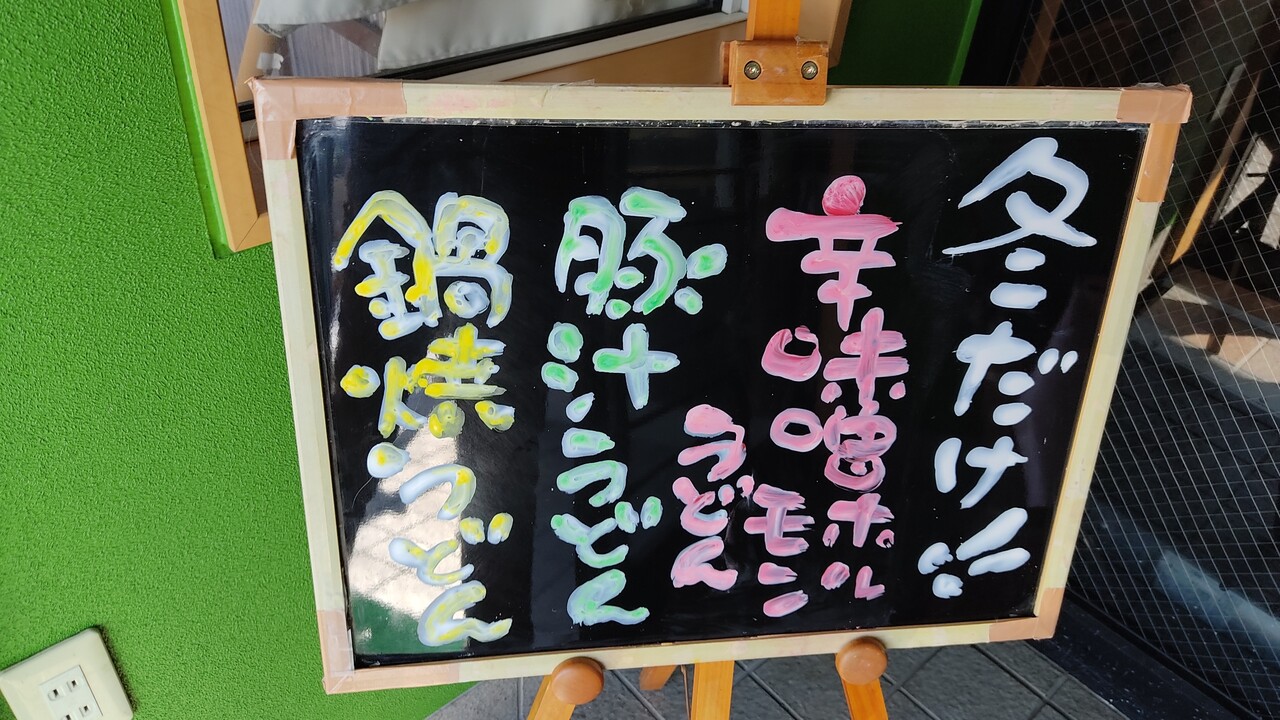 冬だけ!!
辛味噌ホル
モン
うどん
豚汁うどん
鍋焼うどん